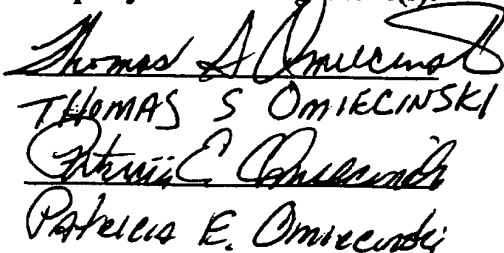 Thomas S Omiecinski
THOMAS S OMIECINSKI
Patricia E Omiecinski
Patricia E. Omiecinski